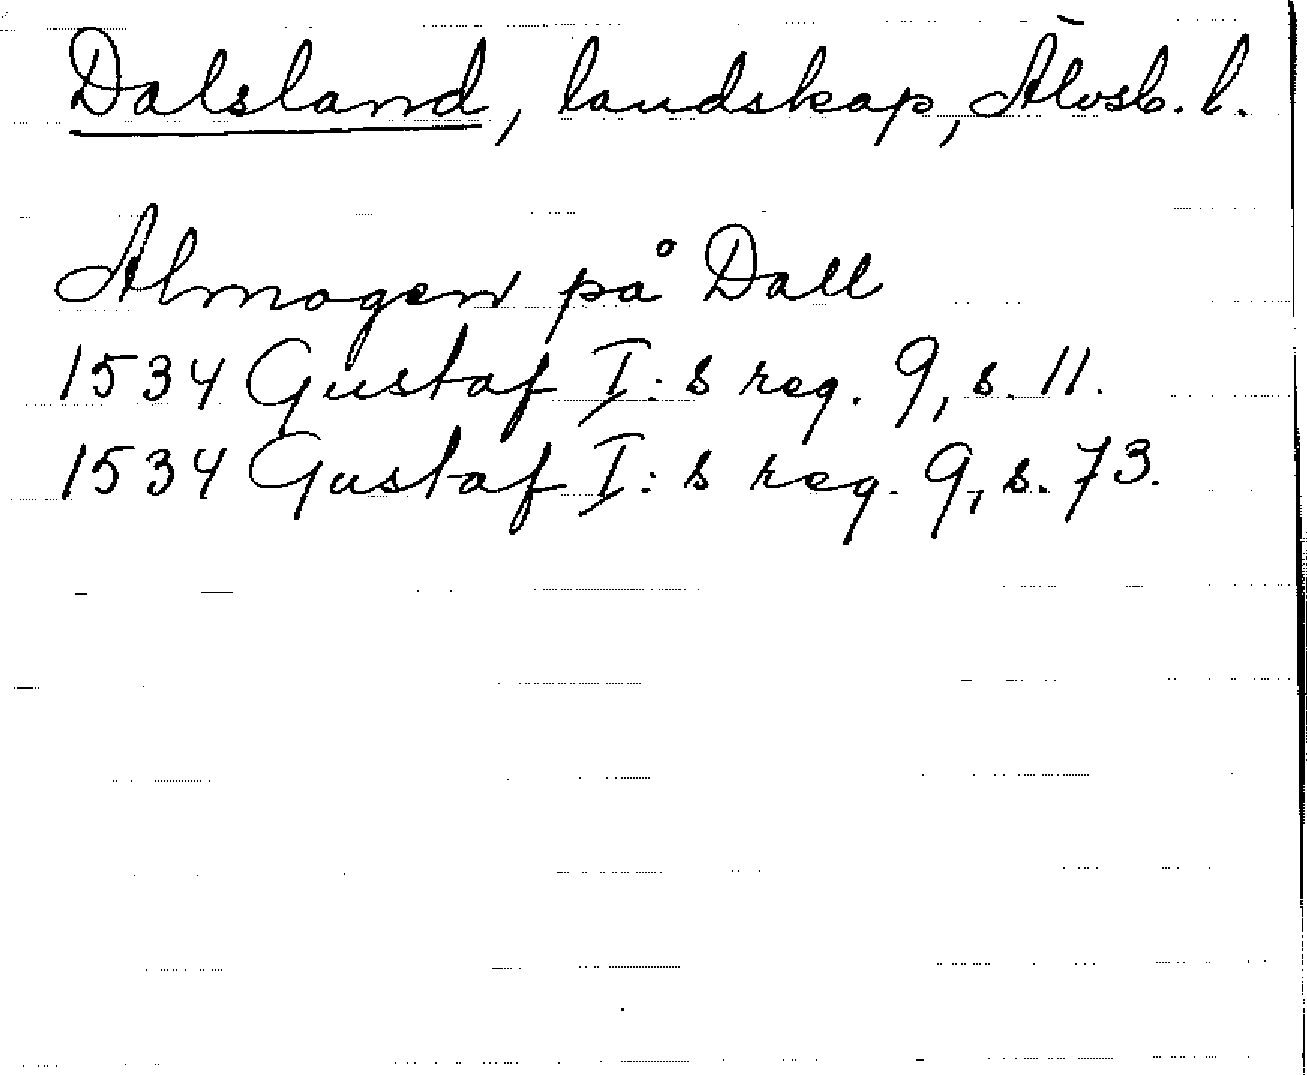 Dalsland, landskap, Älvsb. l.
Almogen på Dall
1534 Gustaf I:s reg. 9, s. 11.
1534 Gustaf I:s reg. 9, s. 73.